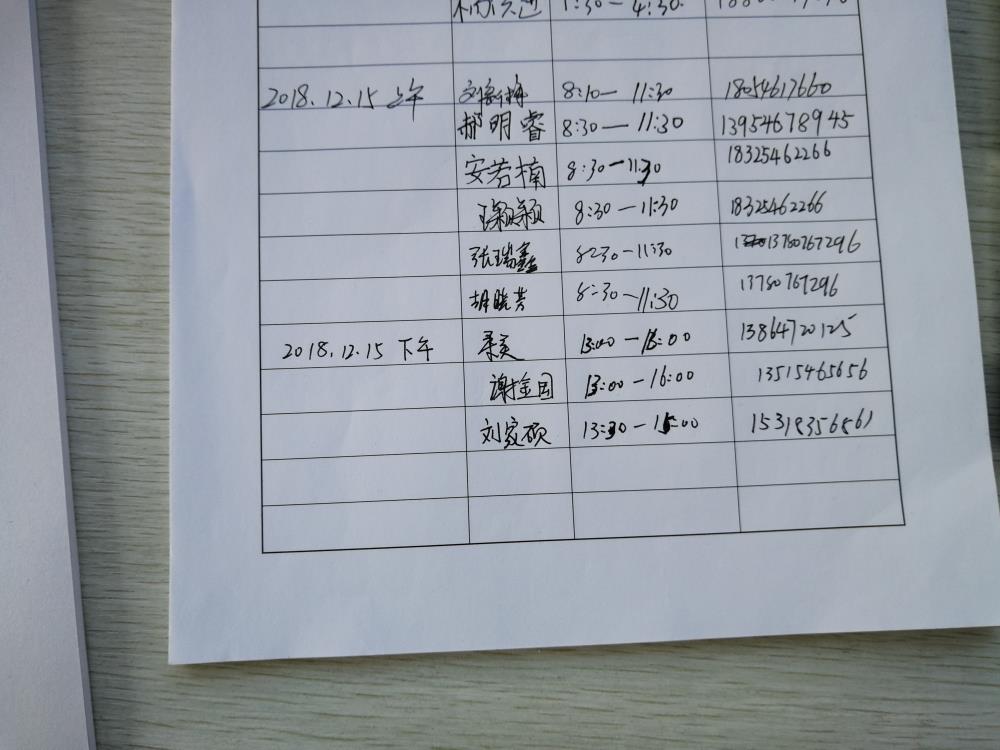 1:30-4:30
2018.12.15 上午 8:10-11:30 18054617660
郝明睿 8:30-11:30 13954678945
安若楠 8:30-11:30 18325462266
8:30-11:30 18325462266
张瑞鑫 8:30-11:30 13780767296
胡晓芳 8:30-11:30 13780767296
2018.12.15 下午 13:00-16:00 13864720125
13:00-16:00 13515465656
刘家硕 13:30-15:00